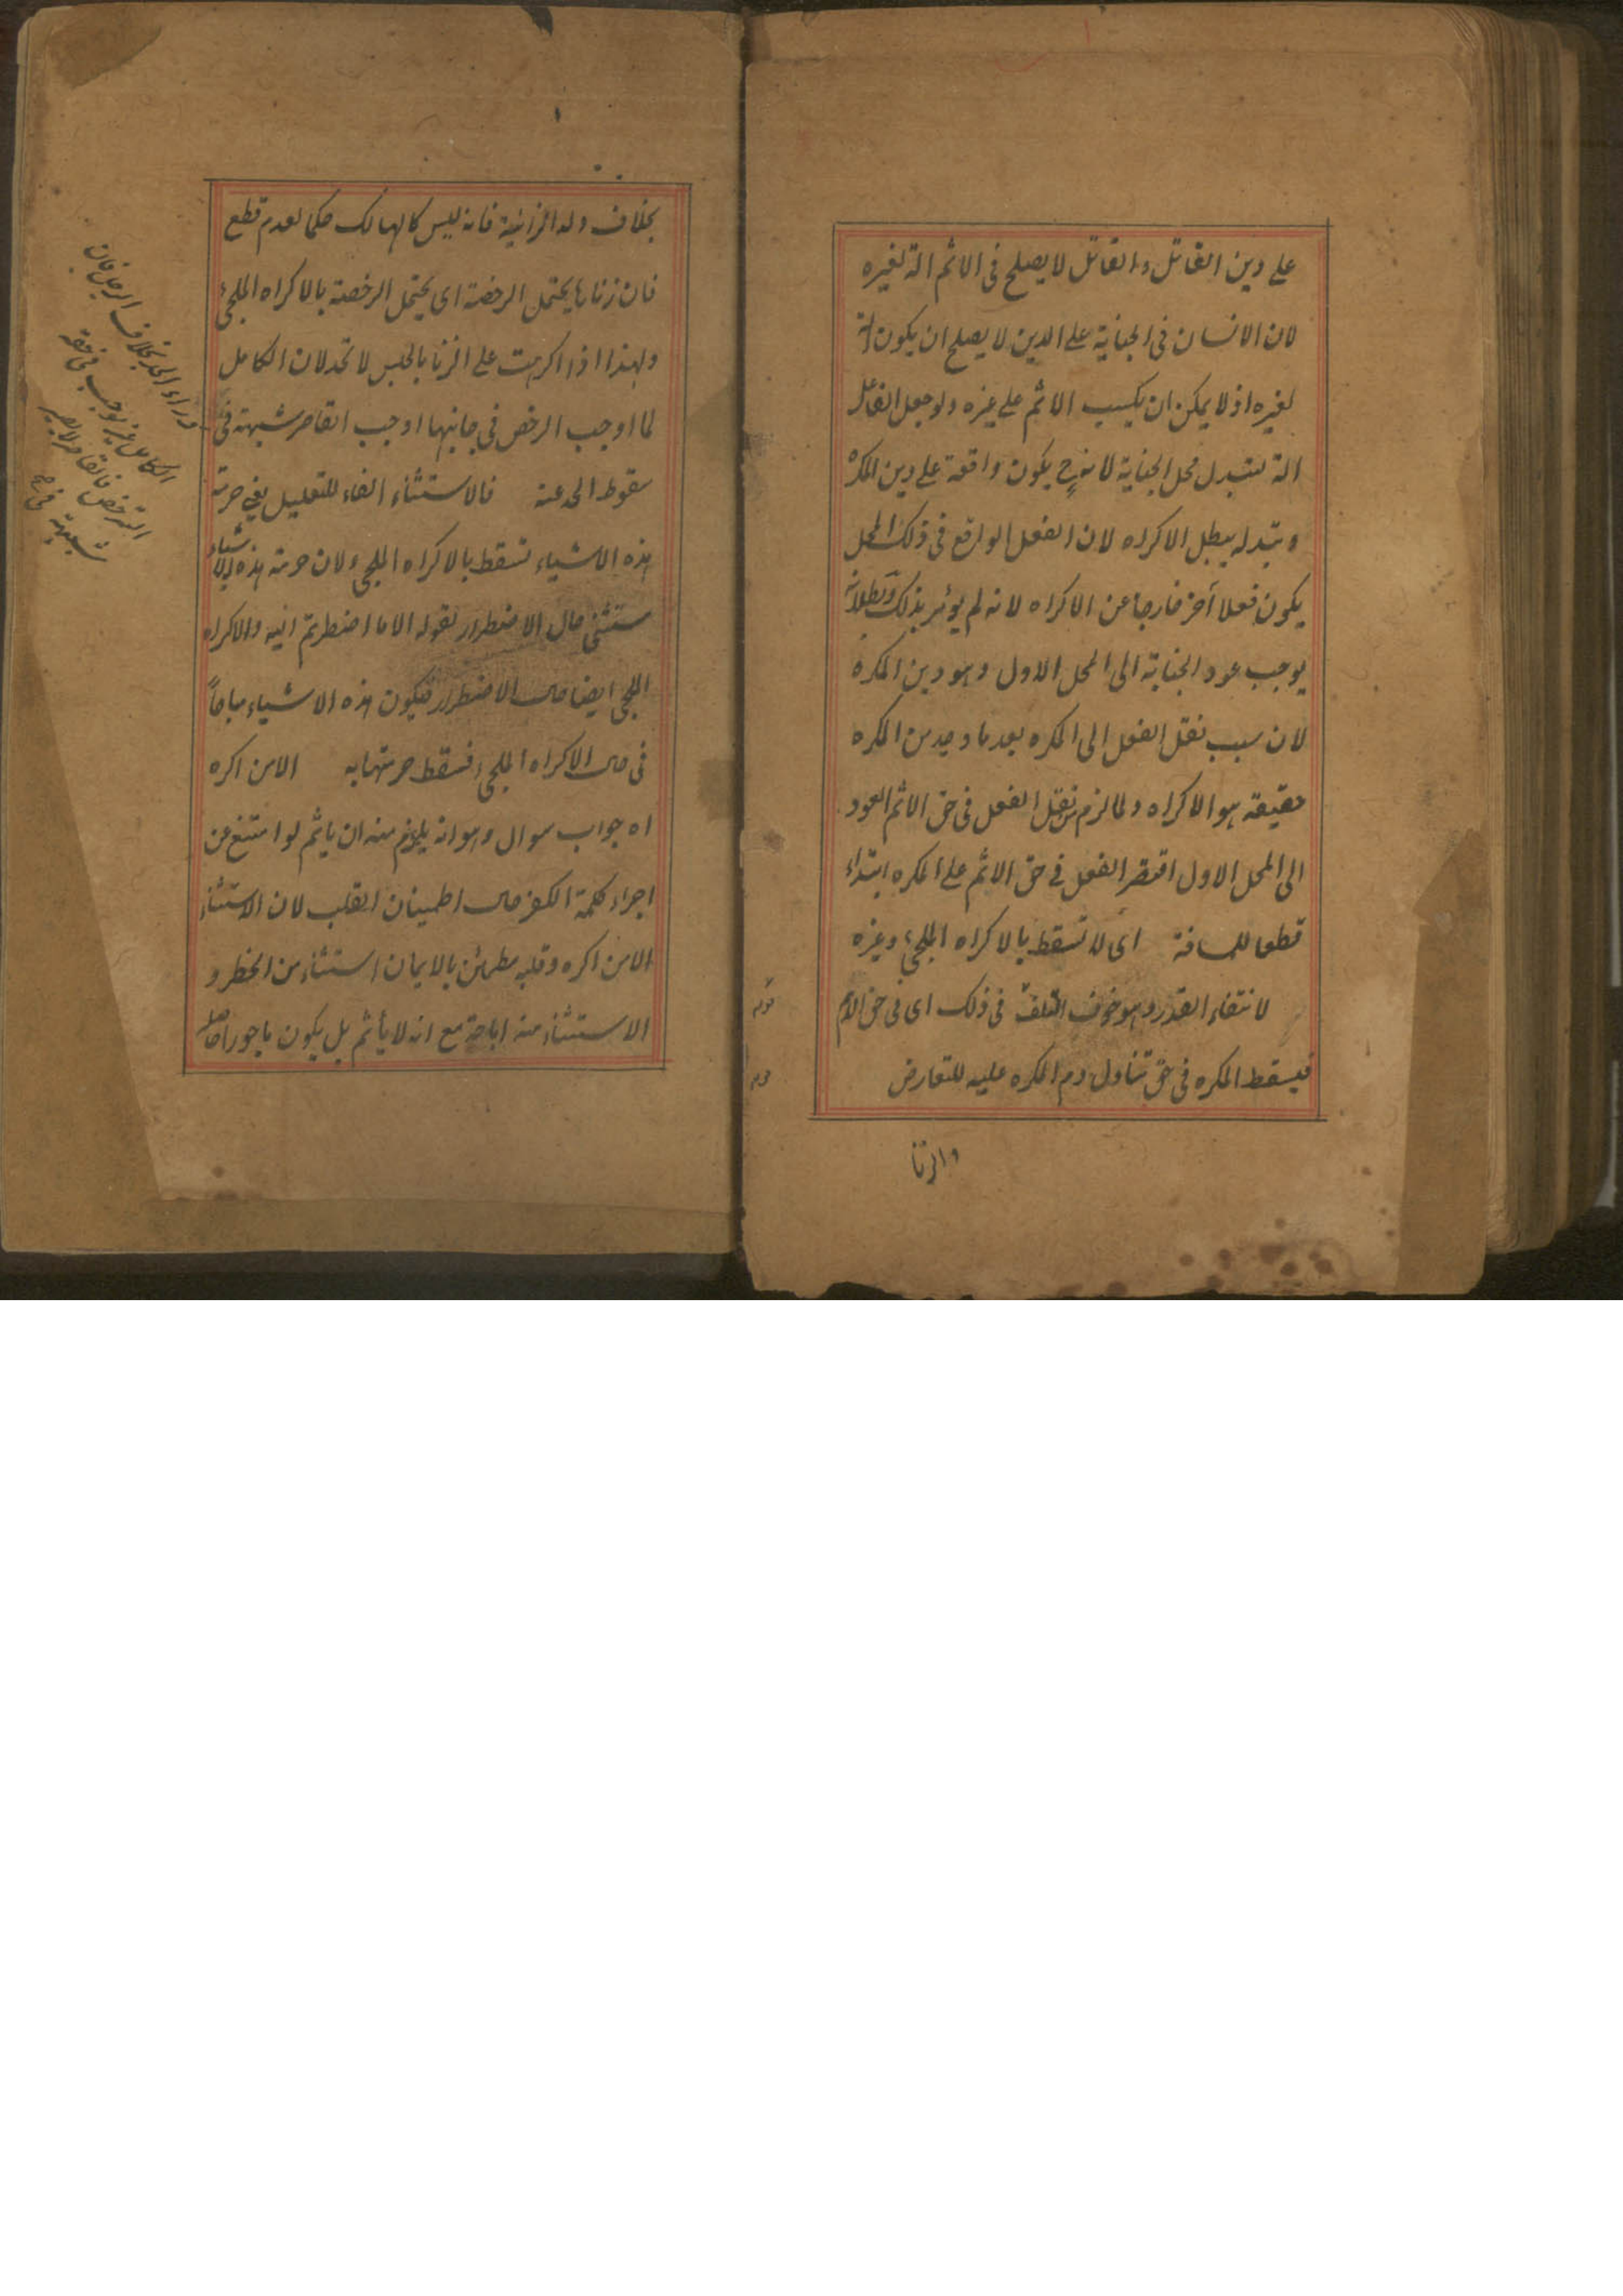 على دين القاتل والقاتل لا يصلح فى الاثم الة لغيره
لان الانسان فى الجناية على الدين لا يصلح ان يكون الة
لغيره اذ لا يمكن ان يكسب الاثم على غيره ولو جعل الفاعل
الة لتبدل محل الجناية لانه ح يكون واقعة على دين المكره
وتبدله يبطل الاكراه لان الفعل الواقع فى ذلك المحل
يكون فعلا آخر خارجا عن الاكراه لانه لم يؤمر بذلك وبطلانه
يوجب عود الجناية الى المحل الاول وهو دين المكره
لان سبب نقل الفعل الى المكره بعد ما وجد من المكره
حقيقة هو الاكراه ولما لزم من نقل الفعل فى حق الاثم العود
الى المحل الاول اقتصر الفعل فى حق الاثم على المكره ابتداء
قطعا للمسافة اى لا تسقط بالاكراه الملجئ وغيره
قوله لانتفاء القدر وهو خوف التلف فى ذلك اى فى حق الاثم
قوله فيسقط المكره فى حق تناول دم المكره عليه للتعارض
والزنا
بخلاف ولد الزانية فانه ليس كالهالك حكما لعدم قطع
فان زناها يحتمل الرخصة اى يحتمل الرخصة بالاكراه الملجئ
ولهذا اذا اكرهت على الزنا بالحبس لا تحد لان الكامل
لما اوجب الرخص فى جانبها اوجب القاصر شبهة فى
سقوط الحد عنه فالاستثناء الفاء للتعليل يعنى حرمة
هذه الاشياء تسقط بالاكراه الملجئ لان حرمة هذه الاشياء
ستثنى حال الاضطرار لقوله الا ما اضطررتم اليه والاكراه
الملجئ ايضا حال الاضطرار فيكون هذه الاشياء مباحاً
فى حال الاكراه الملجئ فتسقط حرمتها به الا من اكره
اه جواب سوال وهو انه يلزم منه ان ياثم لو امتنع عن
اجراء كلمة الكفر حال اطمينان القلب لان الاستثناء
الا من اكره وقلبه مطمئن بالايمان استثناء من الحظر و
الاستثناء منه اباحة مع انه لا يأثم بل يكون ماجورا
درء الحد بخلاف الرجل فان
الكامل لم يوجب فى حقه
الترخص فالقاصر لا يصير
شبهة فى